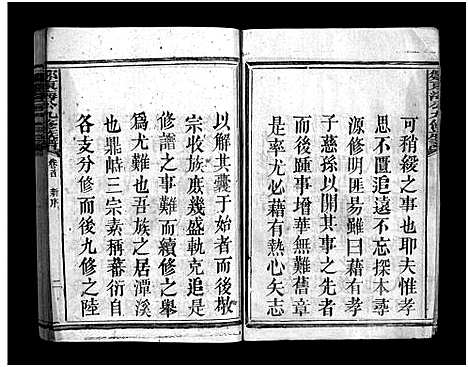 可稍緩之事也耶夫惟孝
思不匱追遠不忘探本尋
源修明匪易顧曰藉有孝
子慈孫以開其事之先者
後踵事增華無難舊章
率尤必藉有熱心矢志
以解其囊于始者而後敬
宗收族庶幾盛軌克追是
修譜之事難而續修之舉
爲尤難也吾族之居潭溪
也鼎峙三宗素稱蕃衍自
各支分修而後九修之陸
卷首
新序
二